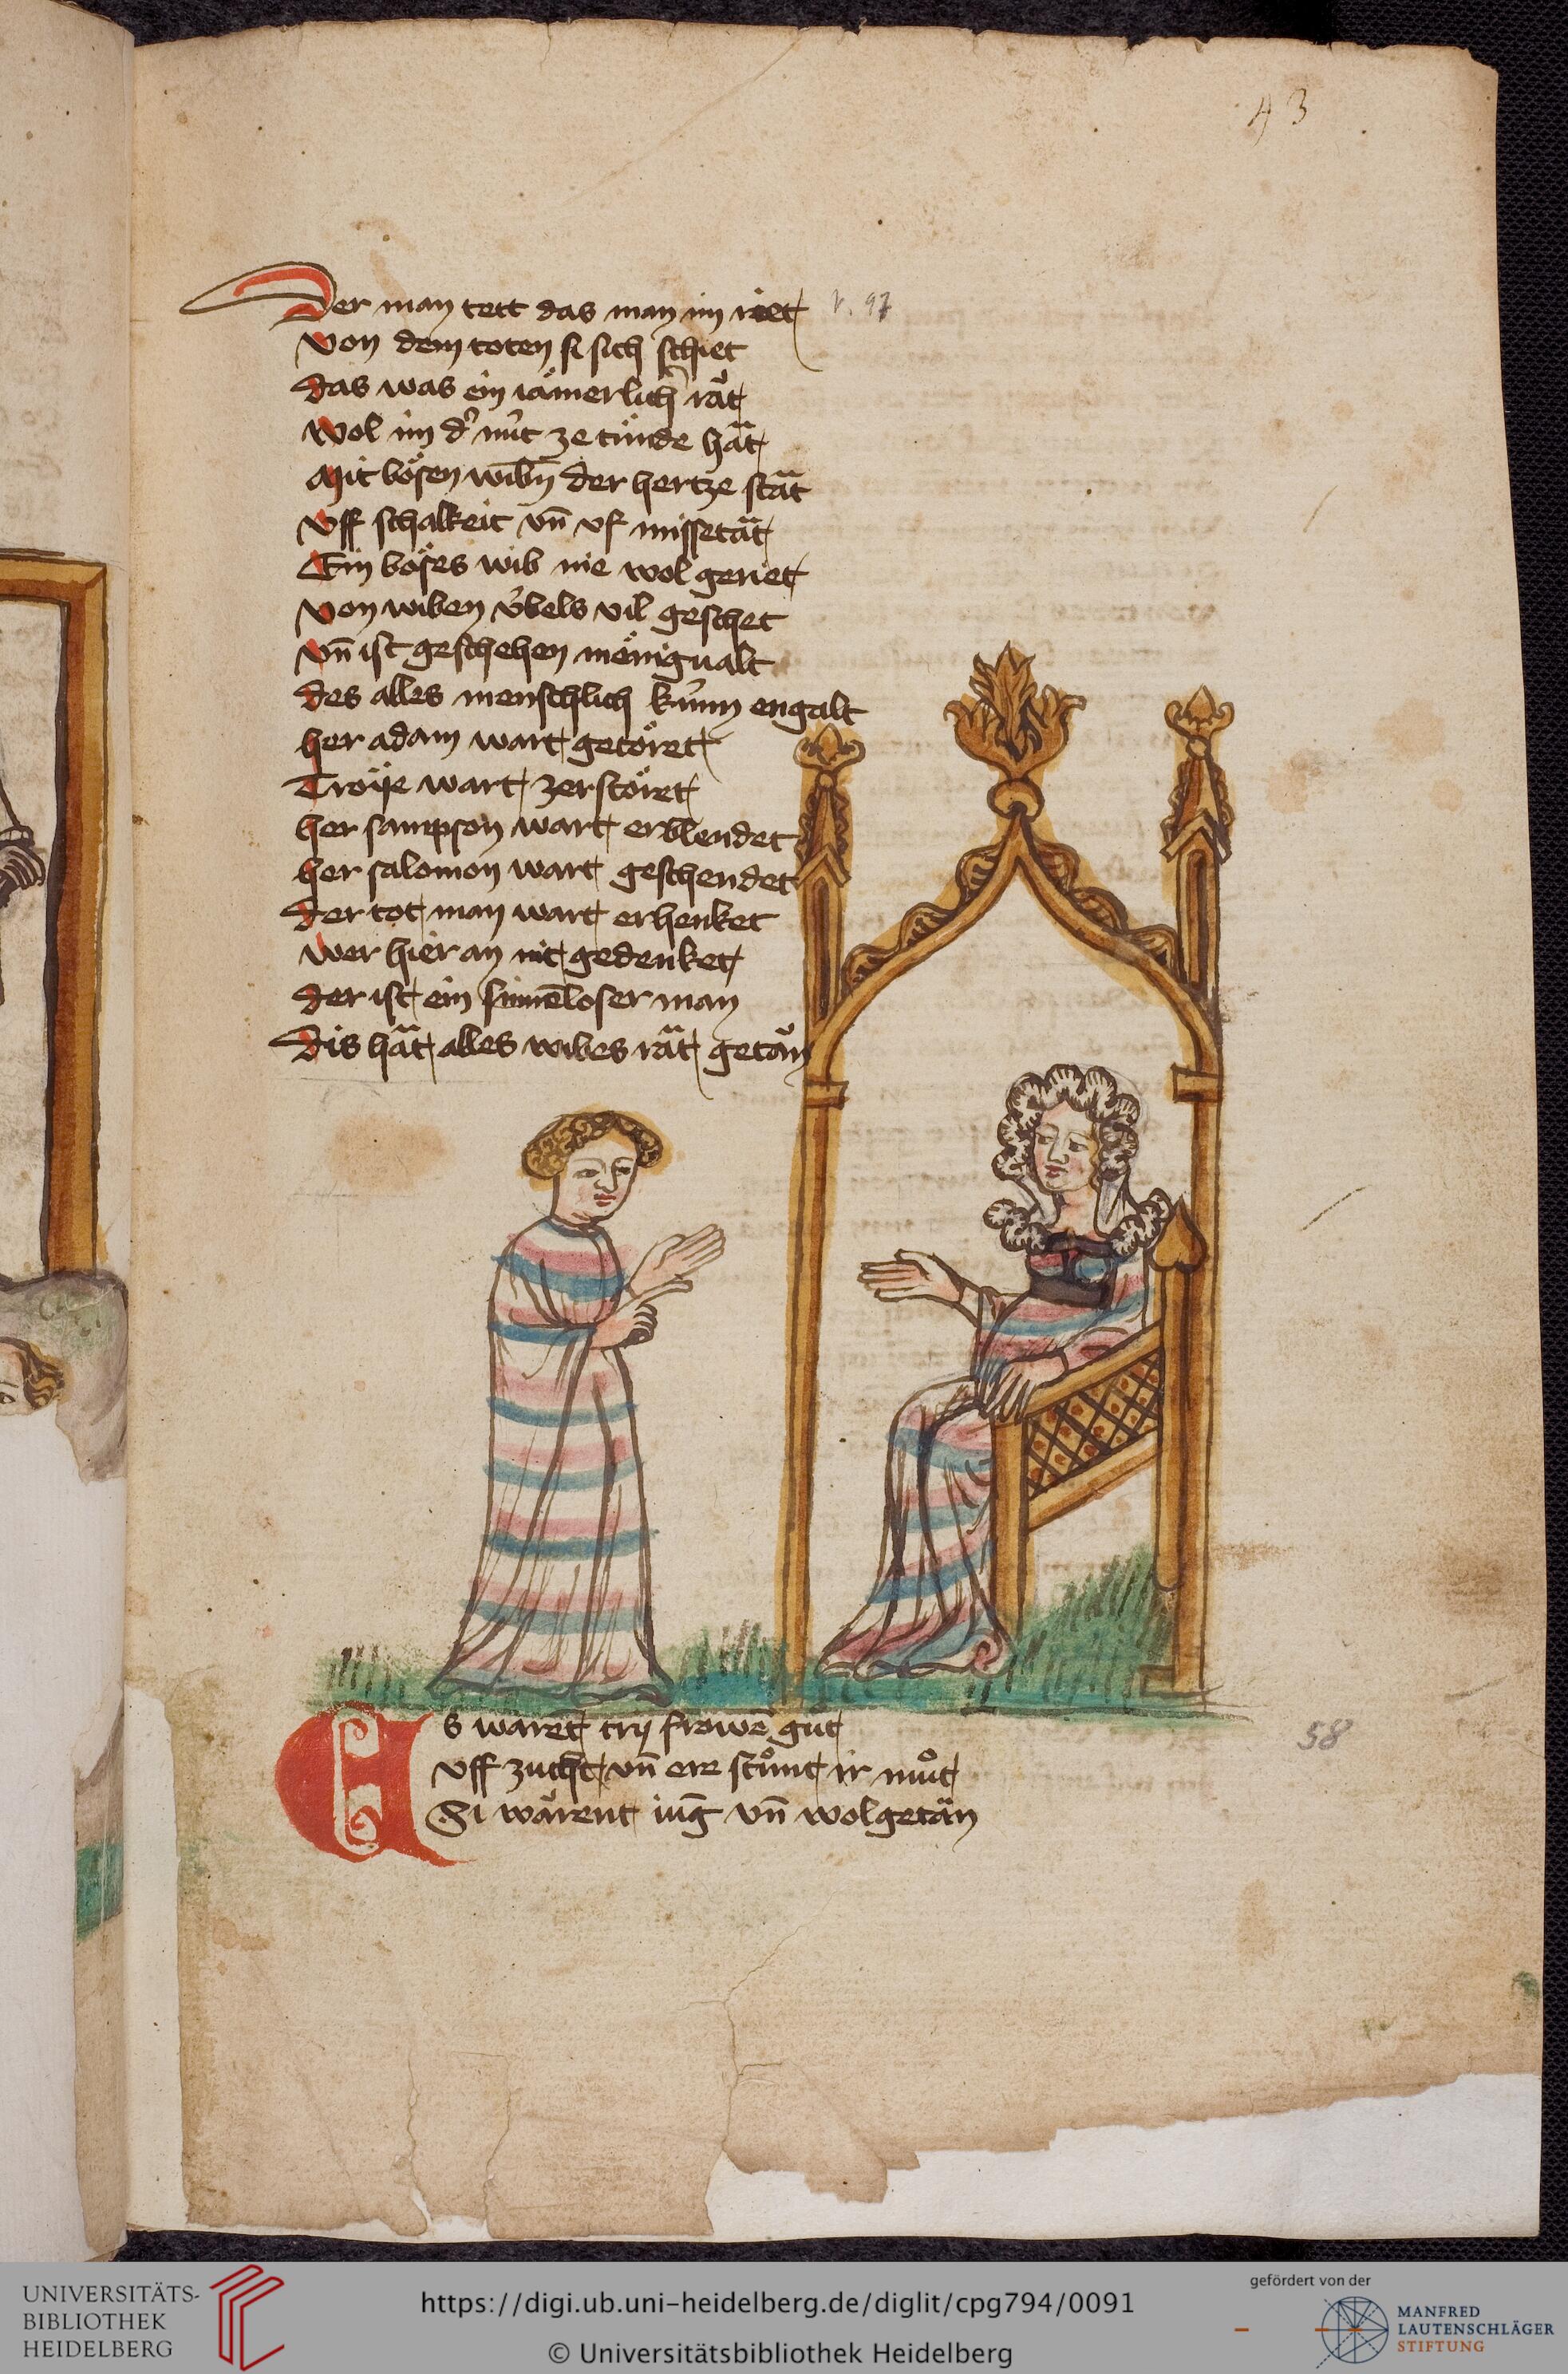 43
Der man tett das man im riet v. 97
von dem toten si sich schiet
das was ein iämerlich̛ rãt
wol im d̛ nüt ze tünde hãt
Mit bösen wibn̄ der hertze stãt
vff schalkeit vn̄ vf missetãt
Ein böses wib nie wol geriet
von wiben v̈bels vil geschet
vn̄ ist geschehen mönigualt
des alles menschlich kün̄n engalt
her adam wart getöret
Troÿe wart zerstöret
her sampson wart erblendet
her salomon wart geschendet
der tot man wart erhenket
wer hier an nit gedenket
der ist ein sinnēloser man
Dis hãt alles wibes rãt getãn
Es warēt try frowē gůt
vff zucht vn̄ ere stůnt ir můt
Si wärent iūg vn̄ wolgetän
58
UNIVERSITÄTS-
BIBLIOTHEK
HEIDELBERG
https://digi.ub.uni-heidelberg.de/diglit/cpg794/0091
© Universitätsbibliothek Heidelberg
gefördert von der
MANFRED
LAUTENSCHLÄGER
STIFTUNG